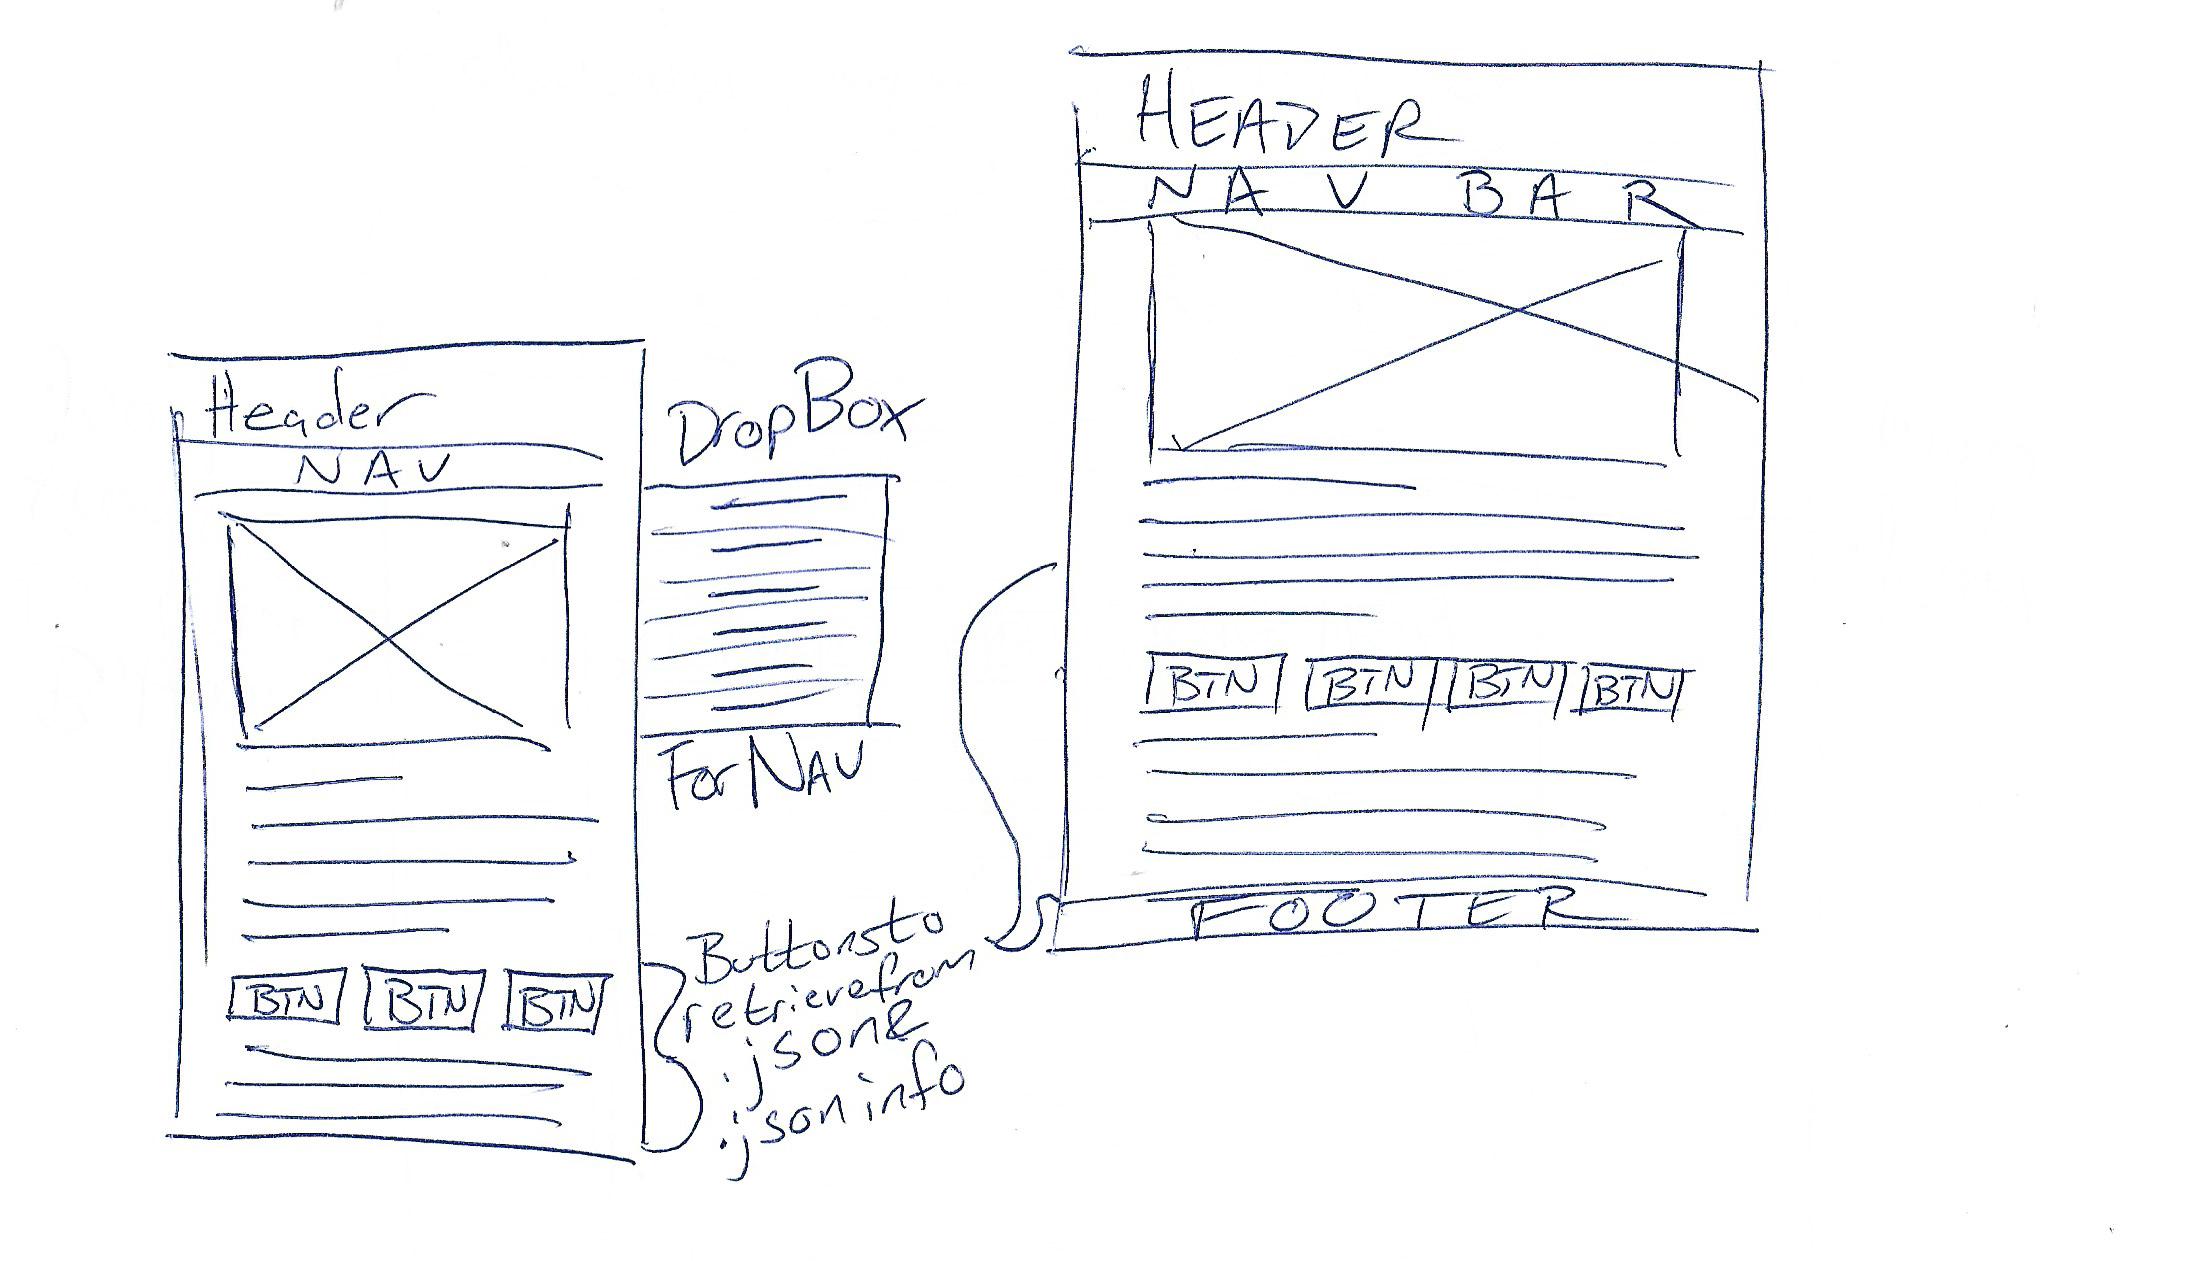 Header
NAV
BTN BTN BTN
DropBox
For NAV
Buttons to
retrieve from
.json &
.json info
HEADER
NAV BAR
BTN BTN BTN BTN
FOOTER